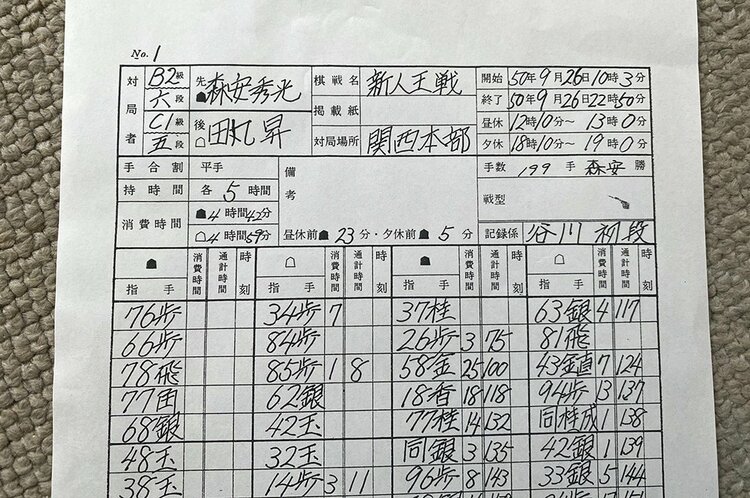 No. 1
対局者 B2級 六段 先 森安秀光 棋戦名 新人王戦 開始 50年9月26日10時3分
掲載紙 終了 50年9月26日22時50分
C1級 五段 後 田丸昇 対局場所 関西本部 昼休 12時10分〜13時0分
夕休 18時10分〜19時0分
手合割 平手 備考 手数 199手 森安 勝
持時間 各5時間 戦型
消費時間 4時間42分
4時間59分 昼休前 23分・夕休前 5分 記録係 谷川初段
指手 消費時間 通計時間 時刻 指手 消費時間 通計時間 時刻 指手 消費時間 通計時間 時刻 指手 消費時間 通計時間 時刻
76歩 34歩 7 37桂 63銀 4 117
66歩 84歩 26歩 3 75 81飛
78飛 85歩 1 8 58金 25 100 43金直 7 124
77角 62銀 18香 18 118 94歩 13 137
68銀 42玉 77桂 14 132 同桂成 1 138
48玉 32玉 同銀 3 135 42銀 1 139
38玉 14歩 3 11 96歩 8 143 33銀 5 144